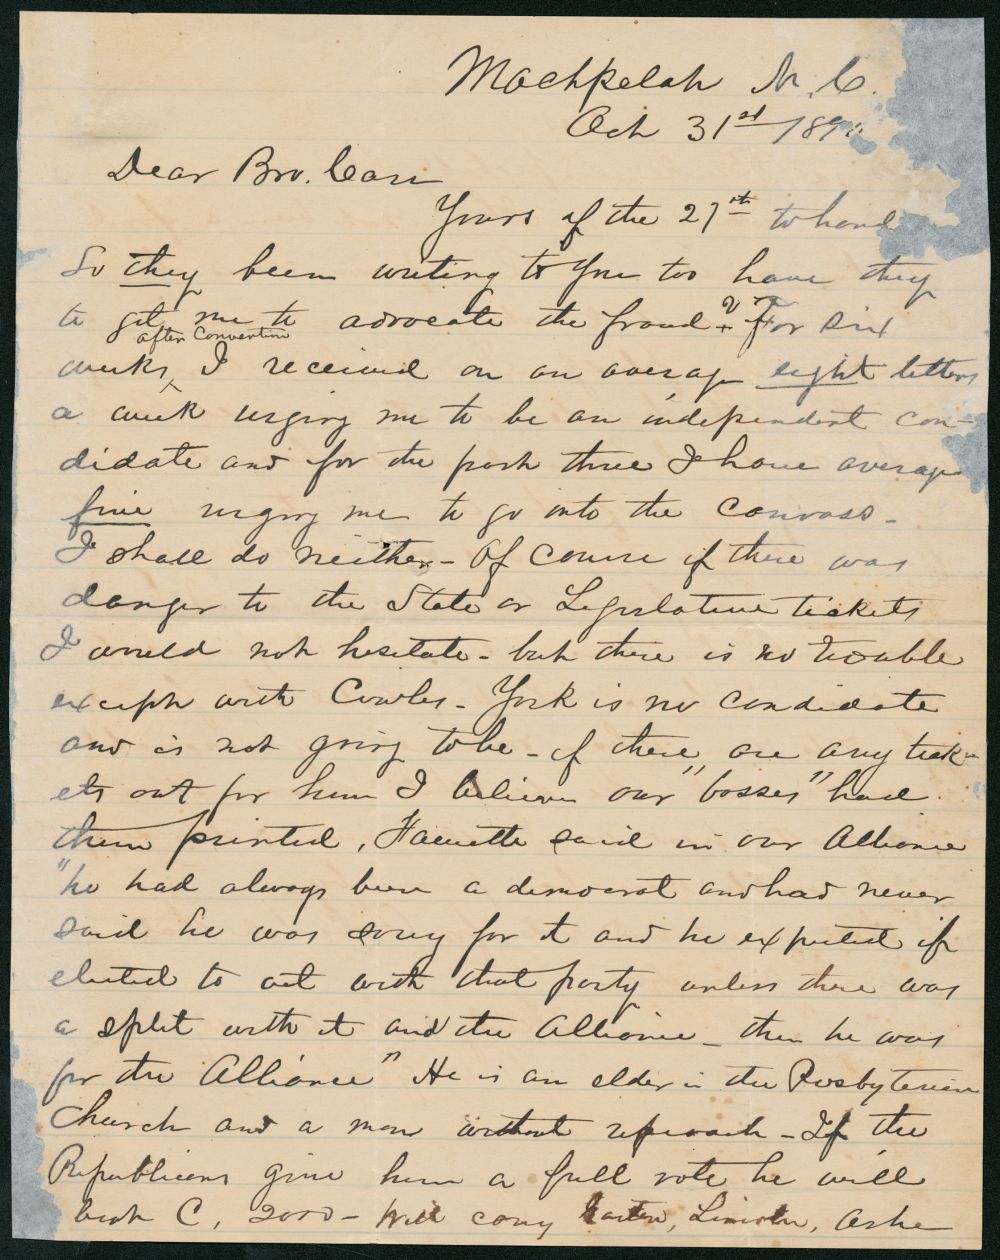 Machpelah N. C.
Oct 31st 189
Dear Bro. Carr
Yours of the 27th to hand
So they been writing to you too have they
to get me to advocate the fraud? ? For six
after Convention
weeks, I received on an average eight letters
a week urging me to be an independent can-
didate and for the past three I have average
five urging me to go into the canvass -
I shall do neither - Of course if there was
danger to the State or Legislative tickets
I would not hesitate - but there is no trouble
except with Cowles - York is no candidate
and is not going to be - if there are any tick-
ets out for him I believe our "bosses" had
them printed, Faucette said in our Alliance
"he had always been a democrat and had never
said he was sorry for it and he expected if
elected to act with that party unless there was
a split with it and the Alliance - then he was
for the Alliance" He is an elder in the Presbyterian
Church and a man without reproach - If the
Republicans give him a full vote he will
beat C, 2000 - Will carry Lincoln, Ashe